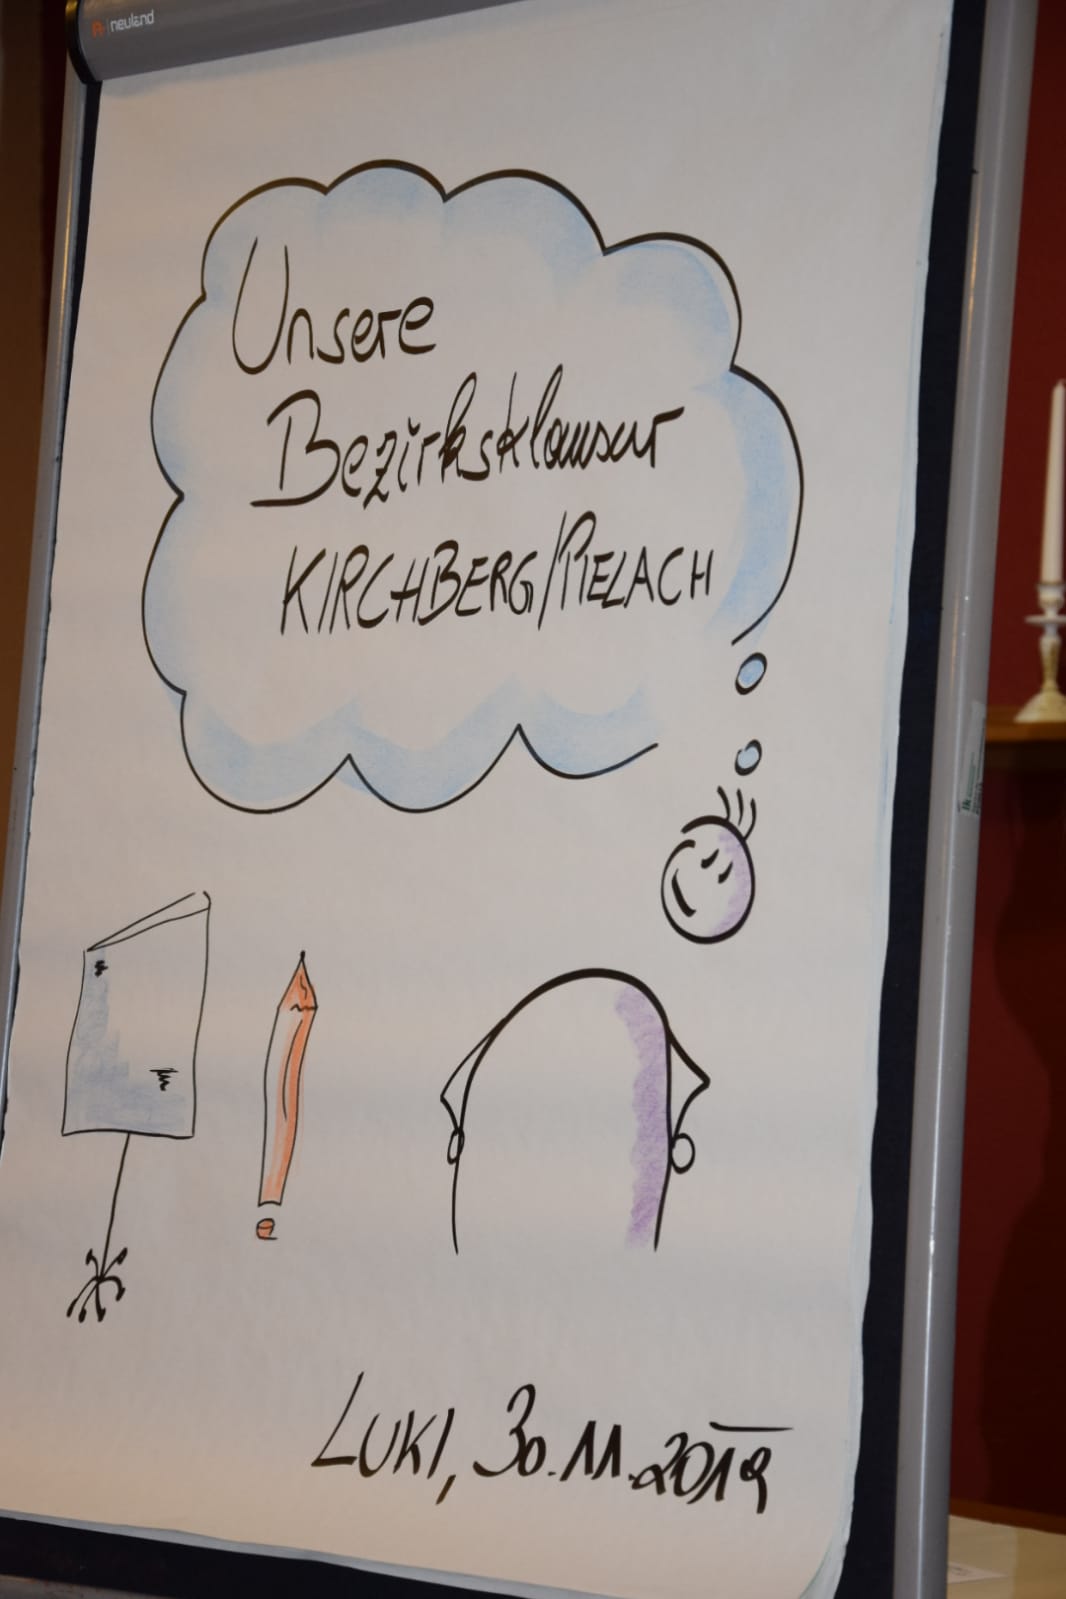 neuland
Unsere
Bezirksklausur
KIRCHBERG/PIELACH
LUKI, 30.11.2019